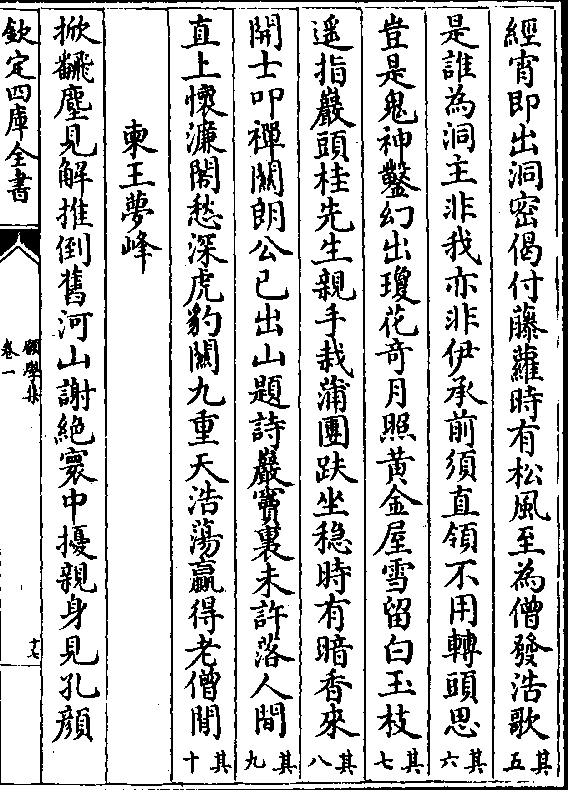 經宵即出洞密偈付藤蘿時有松風至為僧發浩歌其五
是誰為洞主非我亦非伊承前須直領不用轉頭思其六
豈是鬼神鑿幻出瓊花竒月照黄金屋雪留白玉枝其七
遥指巖頭桂先生親手栽蒲團趺坐稳時有暗香來其八
開士叩禪關朗公已出山題詩巖竇裏未許落人間其九
直上懷濂閣愁深虎豹關九重天浩蕩贏得老僧閒其十
柬王夢峰
掀飜塵見解推倒舊河山謝絶寰中擾親身見孔顔
欽定四庫全書
願學集
卷一
十七